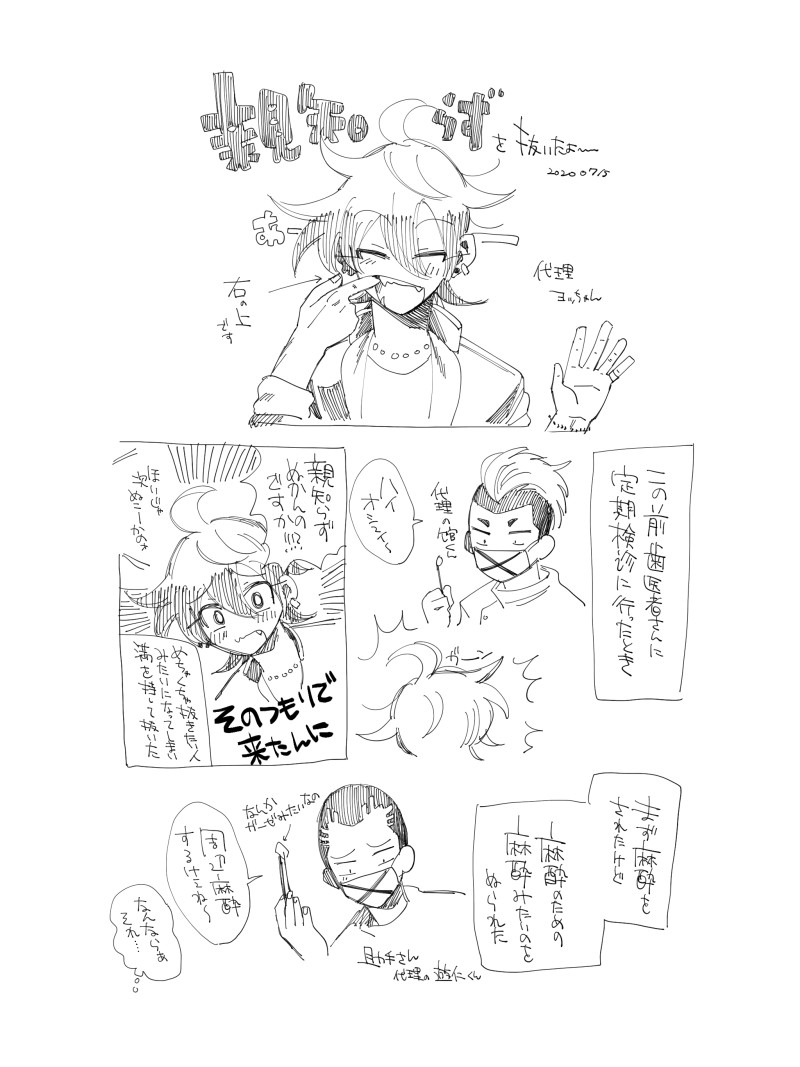 親知らず
を抜いたよ〜
20200715
あー
右の上
です
代理
ヨッちゃん
この前歯医者さんに
定期検診に行ったとき
代理の
ハイ
ガーン
親知らず
ぬかんの
ですか!!?
ほいじゃ
次ぬこーかのぉ
そのつもりで
来たんに
めちゃくちゃ抜きたい人
みたいになってしまい
満を持して抜いた
まず麻酔を
されたけど
麻酔のための
麻酔みたいのを
ぬられた
なんか
ガーゼみたいなの
周辺麻酔
するけぇね〜
助手さん
代理の遊仁くん
なんならぁ
それ…